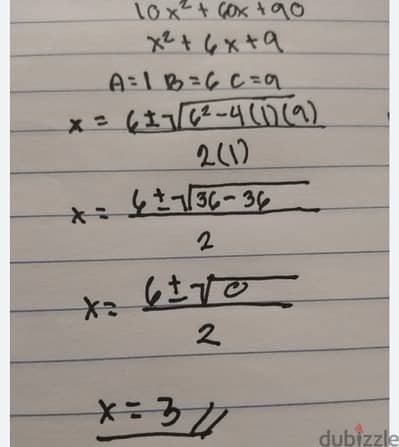 10x² + 60x + 90
x² + 6x + 9
A=1 B=6 C=9
x = 6±√6²-4(1)(9)
2(1)
x = 6±√36-36
2
x= 6±√0
2
x=3//
dubizzle